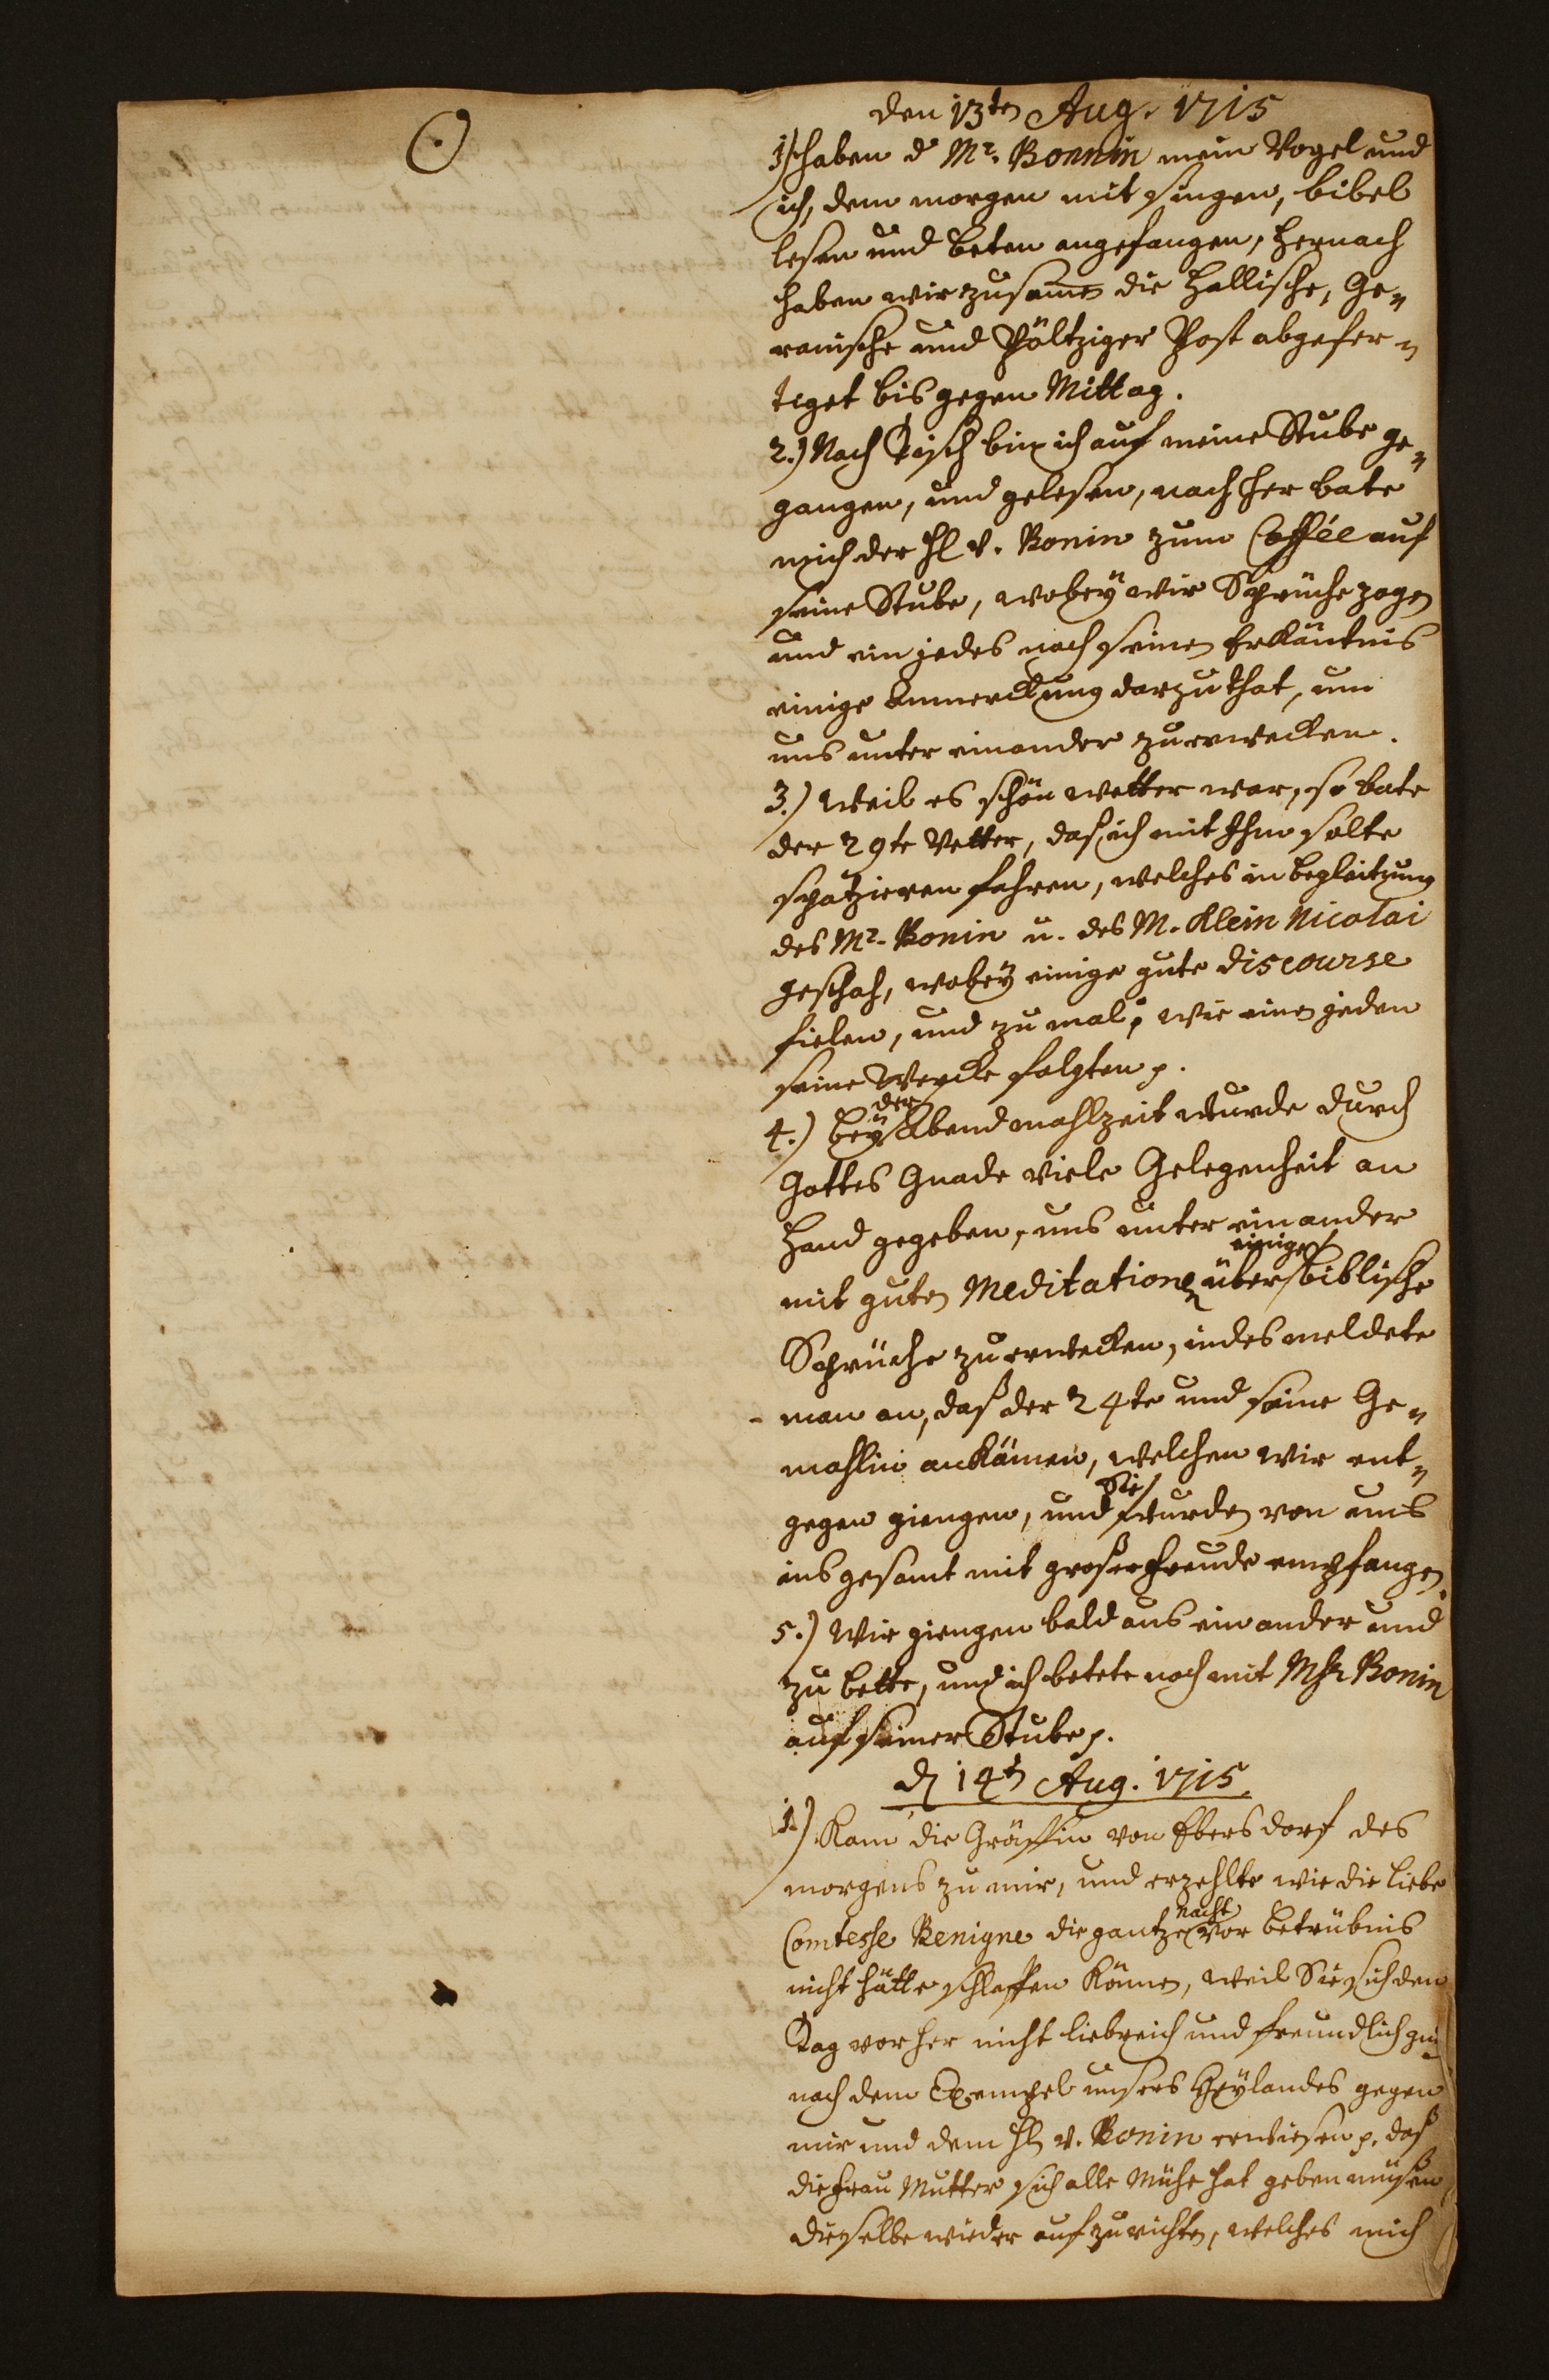 den 13ten Aug. 1715
1) haben d Mr. Bonnin mein Vogel und
ich, dem morgen mit singen, bibel
lesen und beten angefangen, hernach
haben wir zusamen die Hallische, Ge-
raische und Pöltziger Post abgefer-
tiget bis gegen Mittag.
2.) Nach Tisch bin ich auf meine Stube ge-
gangen, und gelesen, nach her bate
mich der H v. Bonin zum Coffée auf
seine Stube, wobey wir Sprüche zogen
und ein jedes nach seinen Erkäntnis
einige Anmerckung darzu that, um
uns unter einander zu erwecken.
3.) Weil es schön wetter war, so bate
der 29te Vetter, daß ich mit Ihm solte
spatzieren fahren, welches in begleitung
des Mr. Bonin u. des M. Klein Nicolai
geschah, wobey einige gute discourse
fielen, und zu mal, wie einen jeden
seine Wercke folgten p.
4.) bey der Abendmahlzeit wurde durch
Gottes Gnade viele Gelegenheit an
Hand gegeben, uns unter einander
mit guten Meditationen über einige biblische
Sprüche zu erwecken, indes meldete
man an, daß der 24te und seine Ge-
mahlin ankämen, welchen wir ent-
gegen giengen, und Sie wurden von uns
ins gesamt mit großer freude empfangen.
5.) Wir giengen bald aus einander und
zu bette, und ich betete noch mit Msr Bonin
auf seiner Stube p.
d 14t Aug. 1715.
1.) Kam die Gräffin von Ebersdorf des
morgens zu mir, und erzehlte wie die liebe
Comtesse Benigne die gantze nacht vor betrübnis
nicht hätte schlaffen können, weil Sie sich den
Tag vorher nicht liebreich und freundlich gnu
nach dem Exempel unsers Heylandes gegen
mir und dem H v. Bonin erwiesen p. daß
die frau Mutter sich alle Mühe hat geben müßen
dieselbe wieder auf zu richten, welches mich